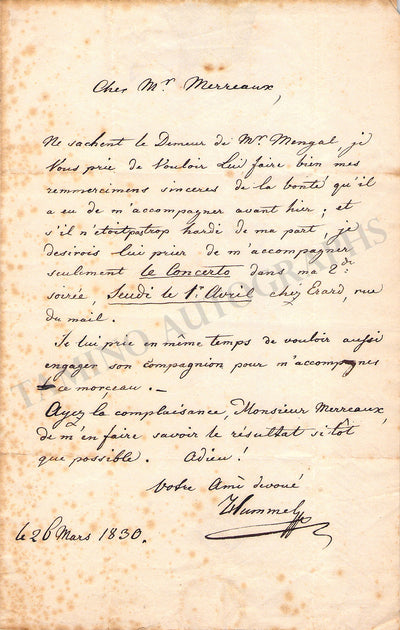 Cher Mr Merreaux,
Ne sachent le Demeur de Mr Mengal, je
Vous prie de Vouloir Lui faire bien mes
remmercimens sinceres de la bonté qu'il
a eu de m'accompagner avant hier; et
s'il n'étoit pas trop hardi de ma part, je
desirois lui prier de m'accompagner
seulement le Concerto dans ma 2de
soirée, Jeudi le 1r Avril chez Erard, rue
du mail.
Je lui prie en même temps de vouloir aussi
engager son compagnion pour m'accompagner
ce morçeau. —
Ayez la complaisance, Monsieur Merreaux,
de m'en faire savoir le résultat sitôt
que possible. Adieu!
Votre Ami devoué
Hummel
le 26 Mars 1830.
TAMINO AUTOGRAPHS